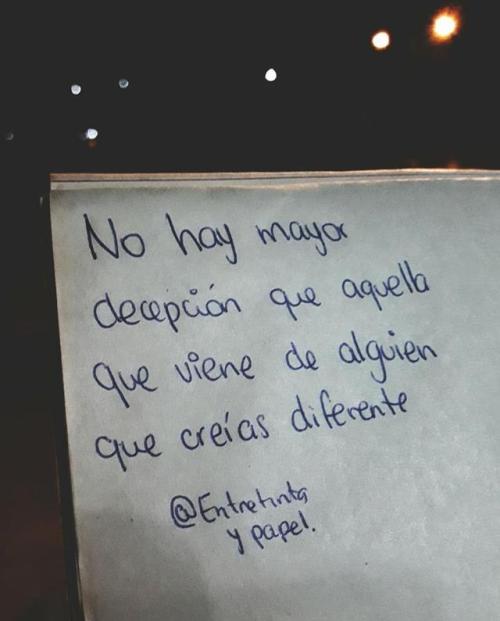 No hay mayor
decepción que aquella
que viene de alguien
que creías diferente
@Entretinta
y papel.